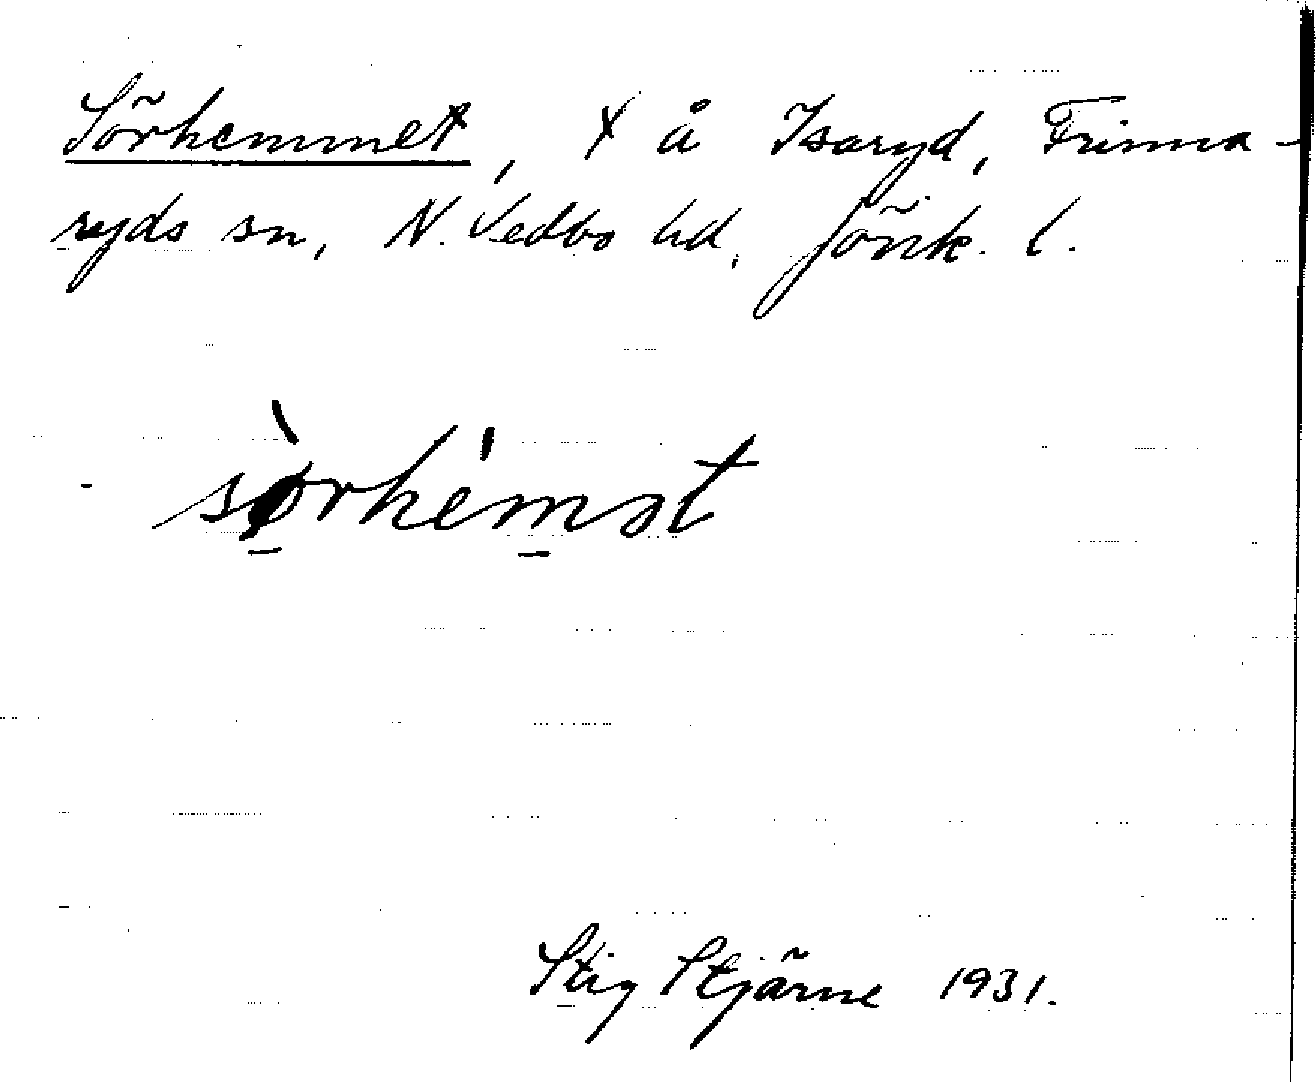 Sörhemmet, x å Isaryd, Frinna-
ryds sn, N. Vedbo hd, Jönk. l.
sø̱̀rhém̱ət
Stig Stjärne 1931.